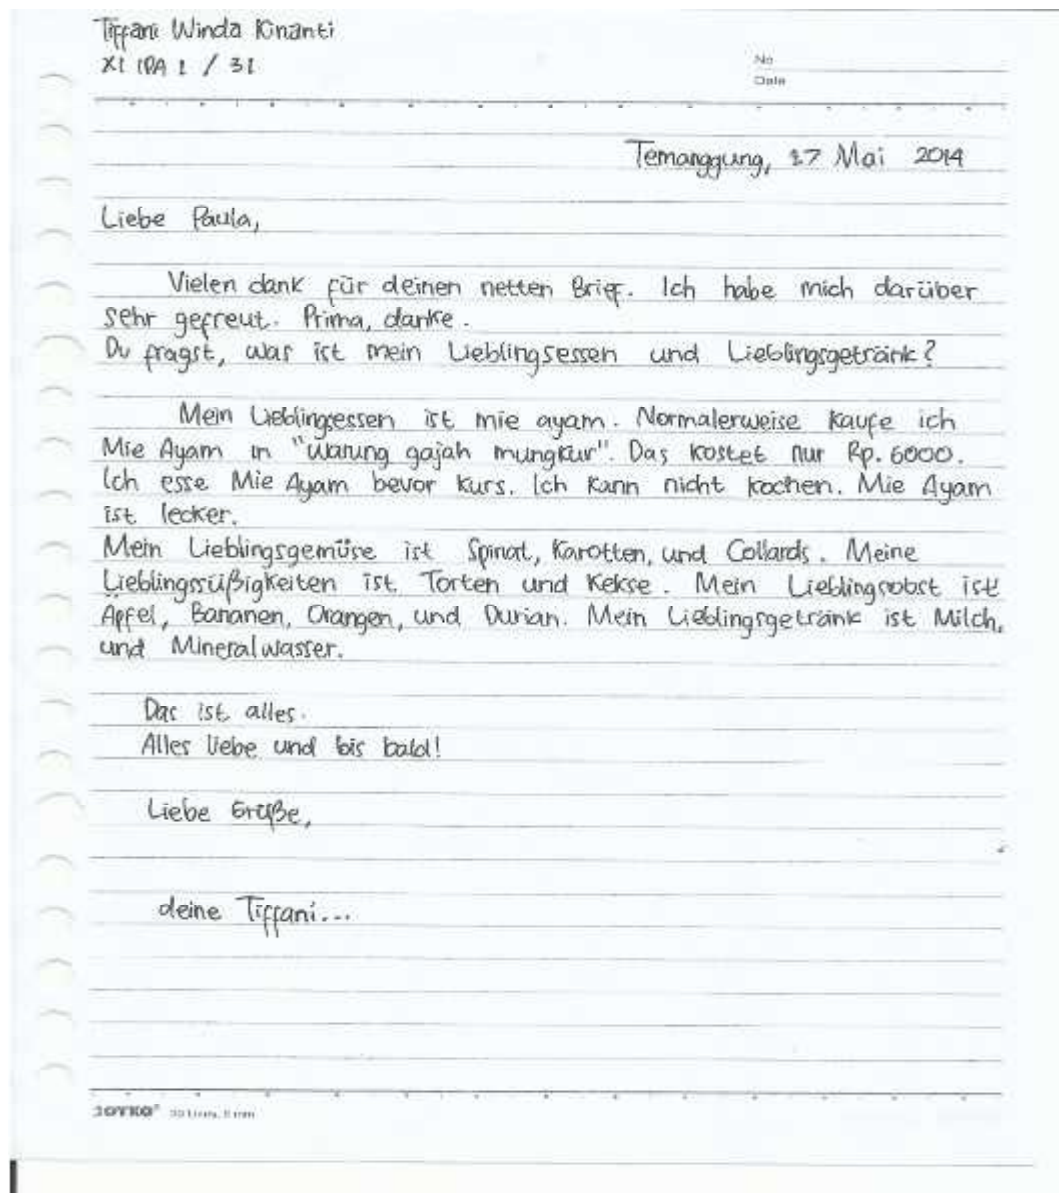 Tiffani Winda Kinanti
XI IPA 1 / 31
No
Date
Temanggung, 27 Mai 2014
Liebe Paula,
Vielen dank für deinen netten Brief. Ich habe mich darüber
sehr gefreut. Prima, danke.
Du fragst, was ist mein Lieblingsessen und Lieblingsgetränk?
Mein Lieblingsessen ist mie ayam. Normalerweise kaufe ich
Mie Ayam in "Warung gajah mungkur". Das kostet nur Rp. 6000.
Ich esse Mie Ayam bevor kurs. Ich kann nicht kochen. Mie Ayam
ist lecker.
Mein Lieblingsgemüse ist Spinat, Karotten, und Collards. Meine
Lieblingssüßigkeiten ist Torten und Kekse. Mein Lieblingsobst ist
Äpfel, Bananen, Orangen, und Durian. Mein Lieblingsgetränk ist Milch,
und Mineralwasser.
Das ist alles.
Alles liebe und bis bald!
Liebe Grüße,
deine Tiffani...
JOYKO